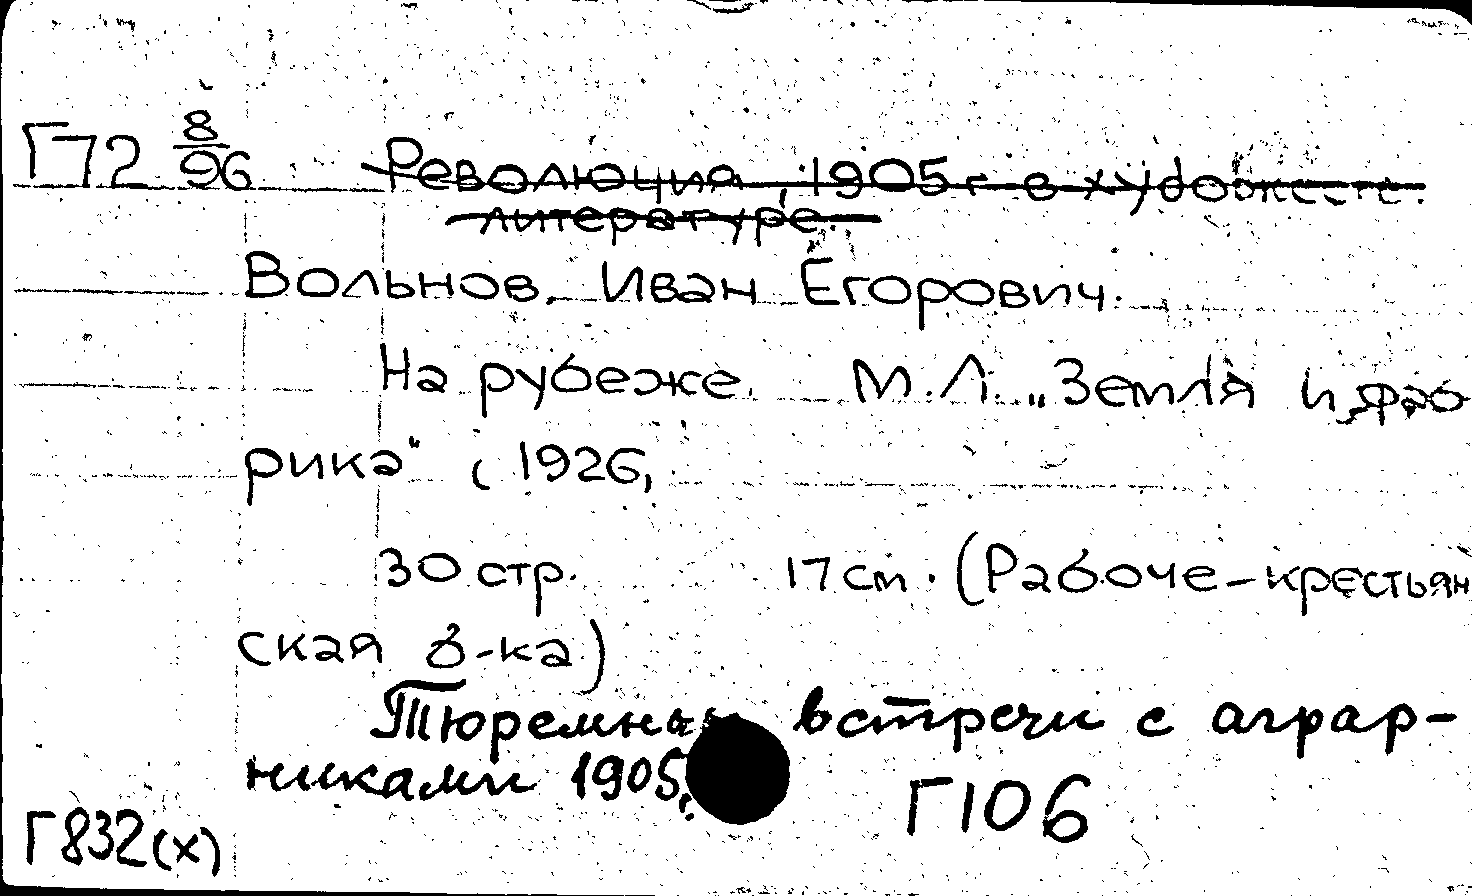 Г72 8/96 Революция 1905 г. в художеств.
литературе.
Вольнов, Иван Егорович.
На рубеже. М.Л. „Земля и фаб
рика“, 1926,
30 стр. 17 см. (Рабоче-крестьян
ская б-ка)
Тюремные встречи с аграр-
никами 1905
Г106
Г832(х)